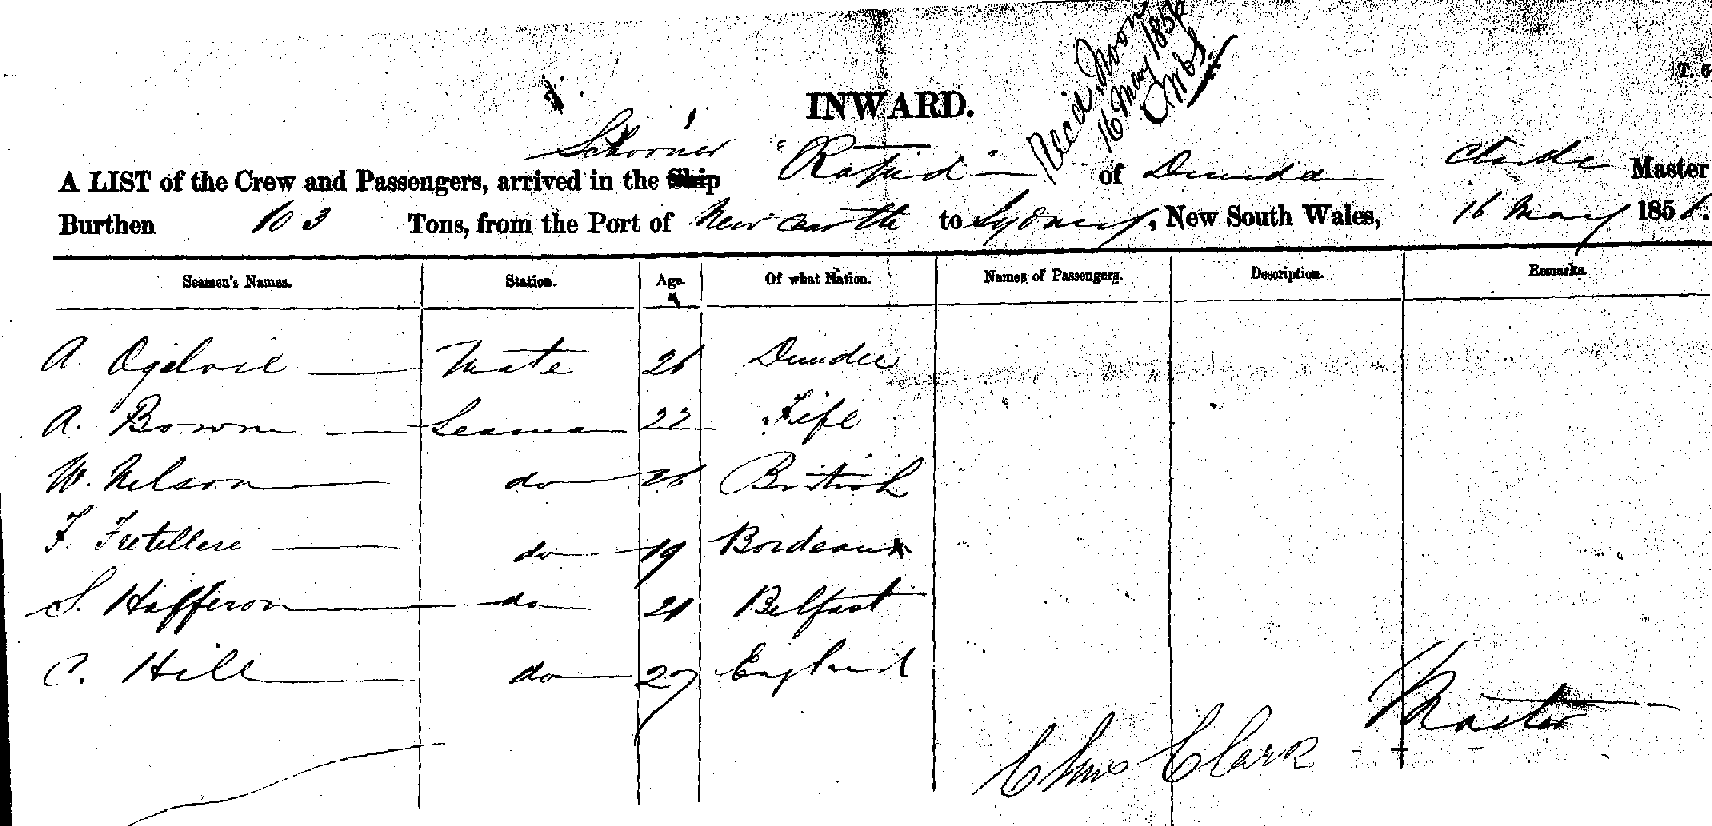 Rec'd Noon
16 May 1856
T. 6
INWARD.
Schooner "Rapid" of Dundee Clarke Master
A LIST of the Crew and Passengers, arrived in the Ship
Burthen 103 Tons, from the Port of Newcastle to Sydney, New South Wales, 16 May 1856.
Seamen's Names. Station. Age. Of what Nation. Names of Passengers. Description. Remarks.
A. Ogilvie Mate 26 Dundee
A. Bowme Seaman 22 Fife
W. Nelson do 26 British
F. Futellere do 19 Bordeaux
S. Hafferon do 21 Belfast
C. Hill do 27 England
Chas Clark Master